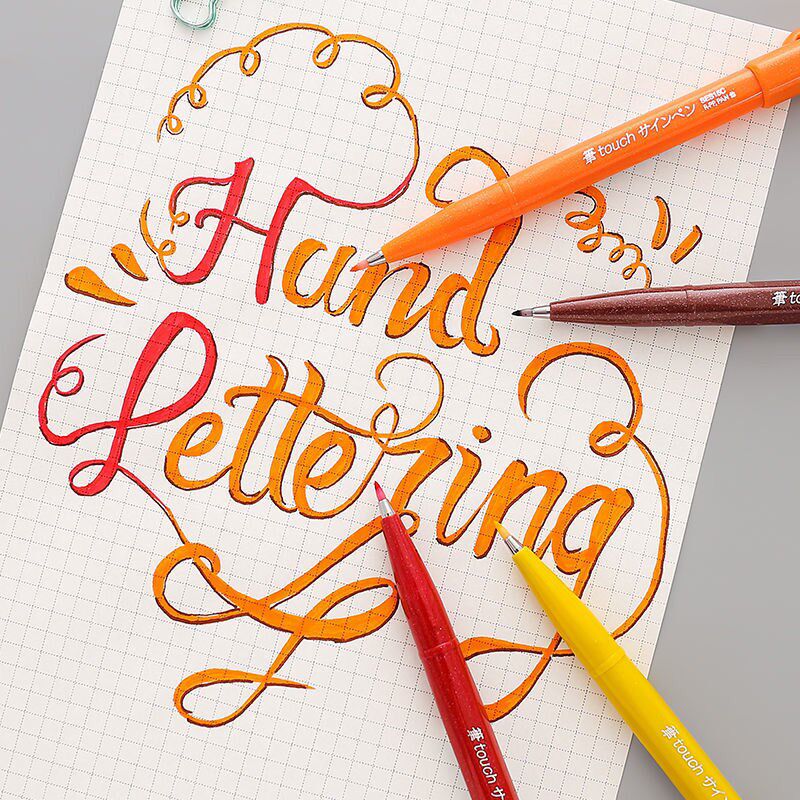 Hand
Lettering
筆touch サインペン
SES15C
P.PP, PAN
筆tou
筆touch サ
筆touch サイン